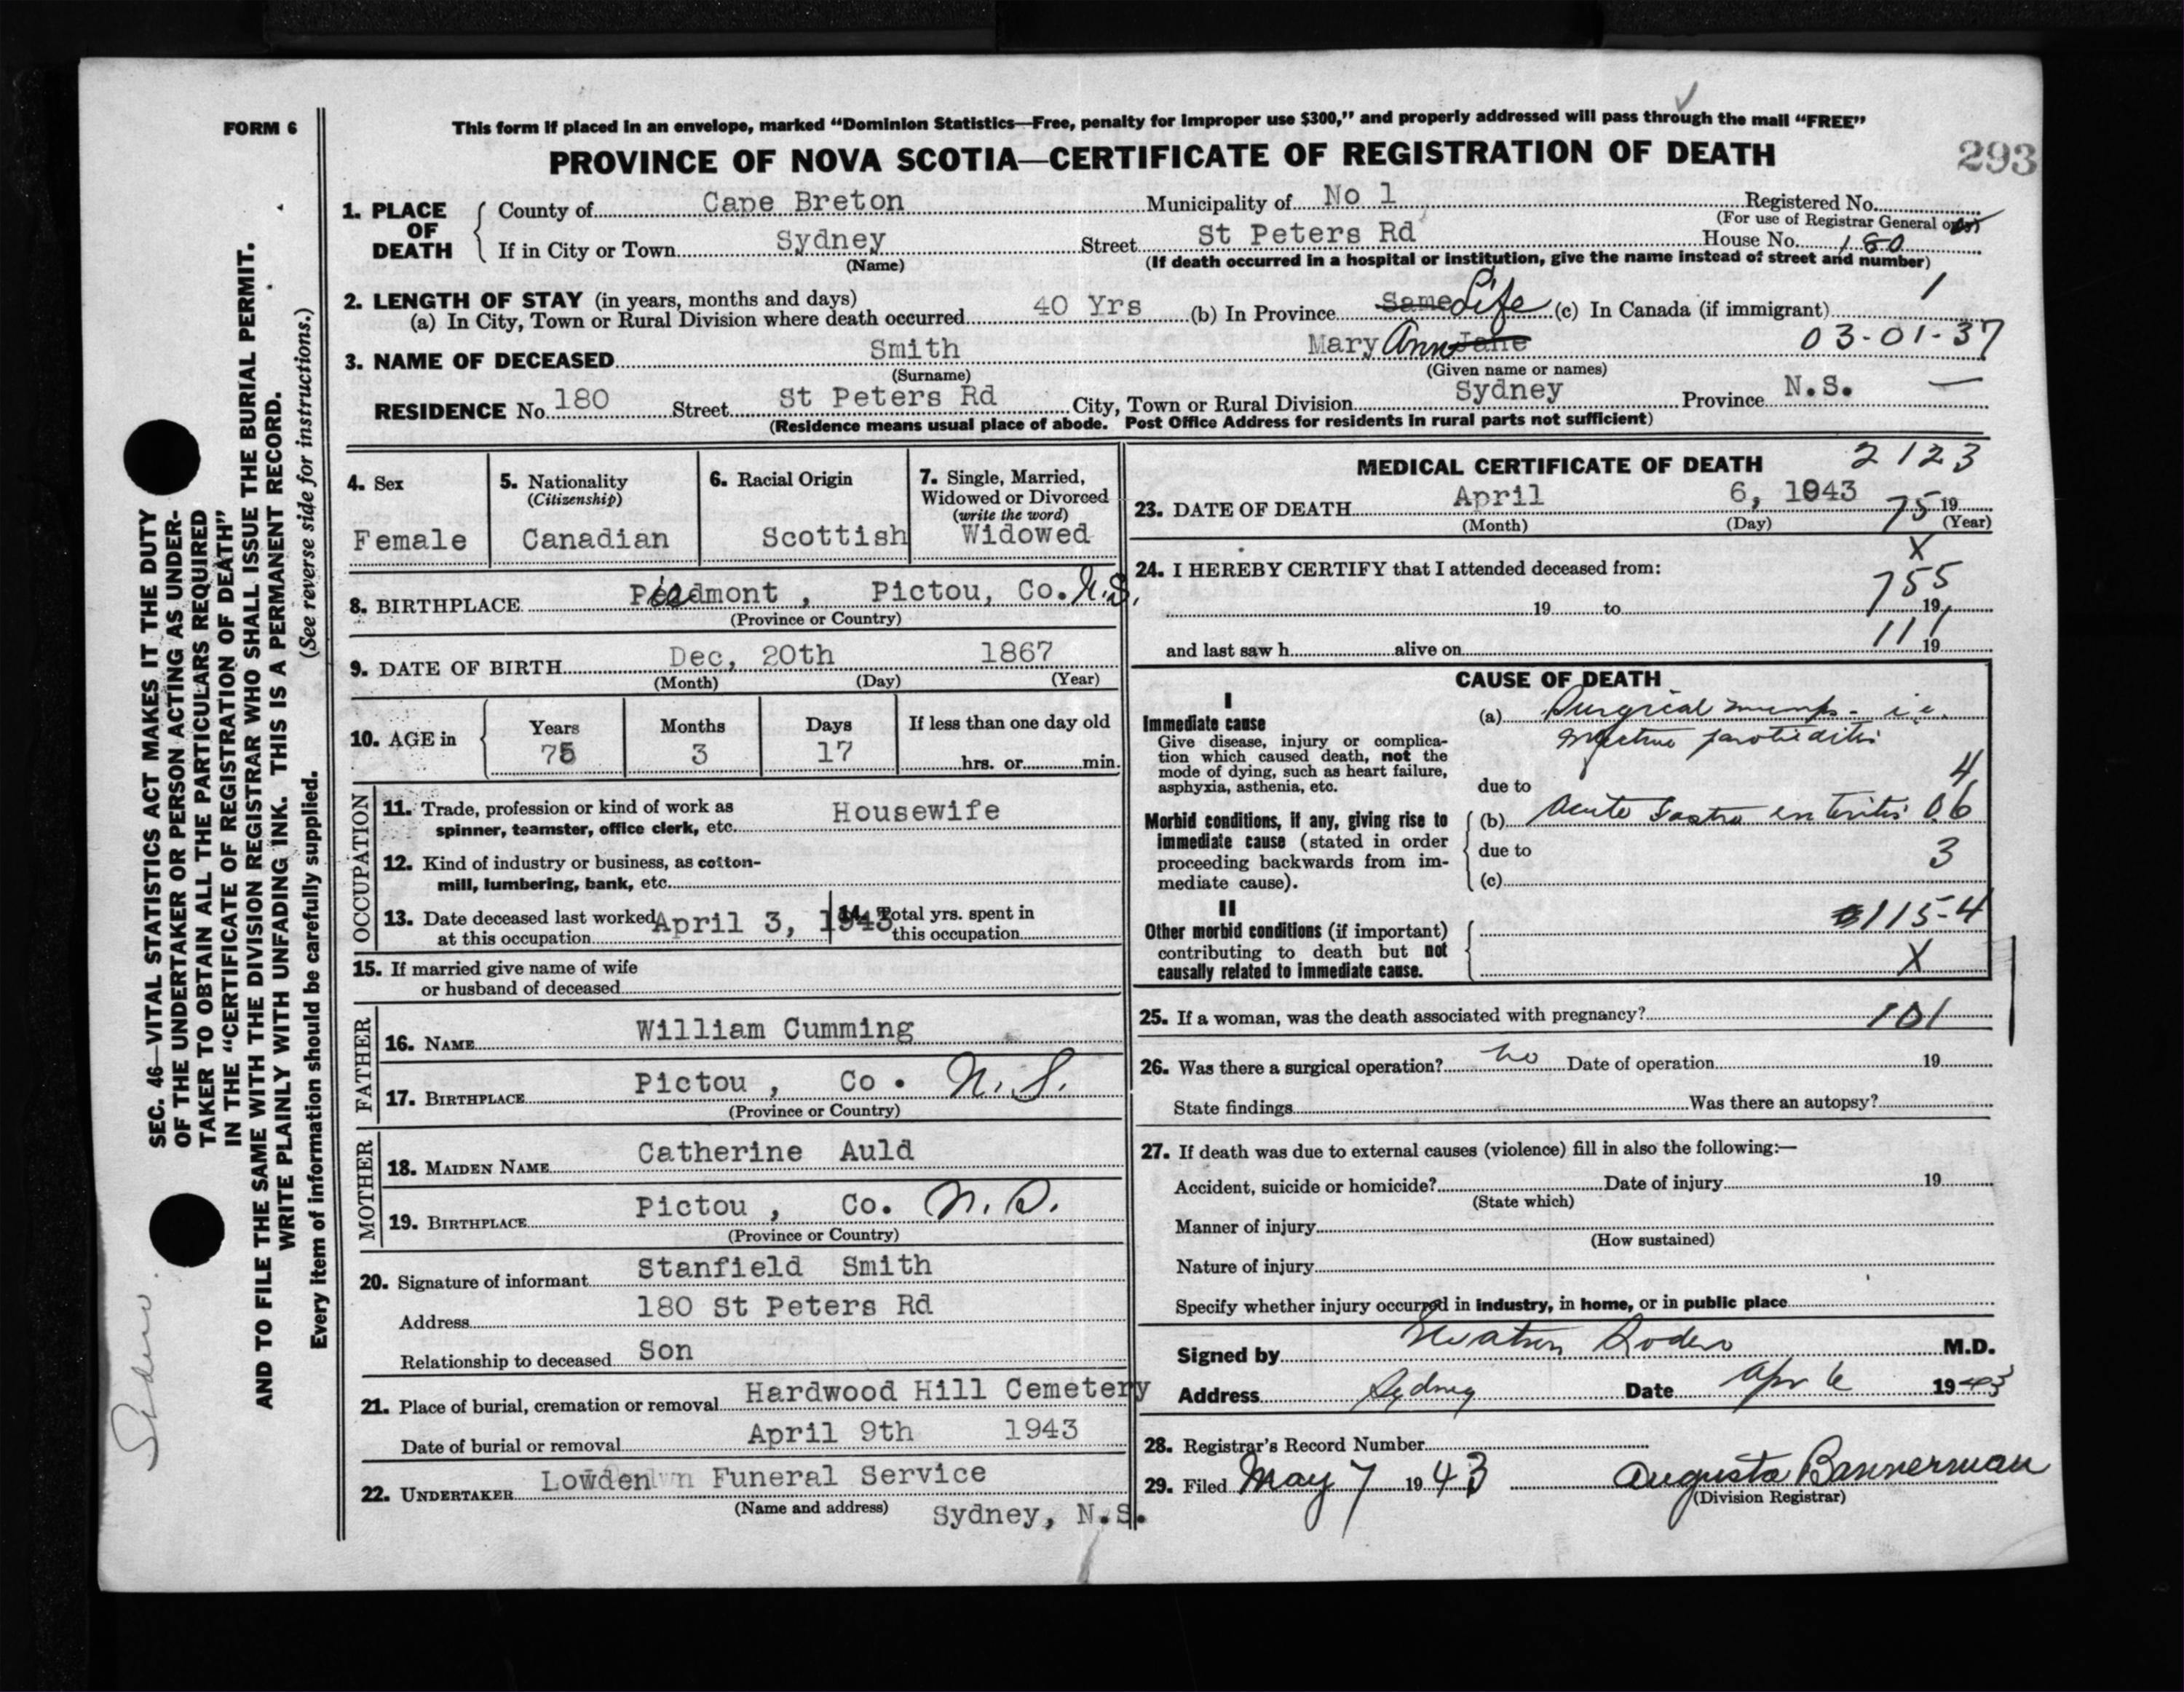 FORM 6
This form if placed in an envelope, marked "Dominion Statistics—Free, penalty for improper use $300," and properly addressed will pass through the mail "FREE"
PROVINCE OF NOVA SCOTIA—CERTIFICATE OF REGISTRATION OF DEATH
293
1. PLACE OF DEATH
County of Cape Breton Municipality of No 1 Registered No.
(For use of Registrar General only)
If in City or Town Sydney Street St Peters Rd House No. 180
(Name) (If death occurred in a hospital or institution, give the name instead of street and number)
2. LENGTH OF STAY (in years, months and days) 1
(a) In City, Town or Rural Division where death occurred 40 Yrs (b) In Province Same Life (c) In Canada (if immigrant)
3. NAME OF DECEASED Smith Mary Ann Jane 03-01-37
(Surname) (Given name or names)
RESIDENCE No. 180 Street St Peters Rd City, Town or Rural Division Sydney Province N.S.
(Residence means usual place of abode. Post Office Address for residents in rural parts not sufficient)
4. Sex
Female
5. Nationality
(Citizenship)
Canadian
6. Racial Origin
Scottish
7. Single, Married,
Widowed or Divorced
(write the word)
Widowed
8. BIRTHPLACE Piedmont , Pictou, Co. N.S.
(Province or Country)
9. DATE OF BIRTH Dec, 20th 1867
(Month) (Day) (Year)
10. AGE in
Years Months Days If less than one day old
75 3 17 hrs. or min.
OCCUPATION
11. Trade, profession or kind of work as
spinner, teamster, office clerk, etc. Housewife
12. Kind of industry or business, as cotton-
mill, lumbering, bank, etc.
13. Date deceased last worked
at this occupation April 3, 1943
14. Total yrs. spent in
this occupation
15. If married give name of wife
or husband of deceased
FATHER
16. NAME William Cumming
17. BIRTHPLACE Pictou , Co. N.S.
(Province or Country)
MOTHER
18. MAIDEN NAME Catherine Auld
19. BIRTHPLACE Pictou , Co. N.S.
(Province or Country)
20. Signature of informant Stanfield Smith
Address 180 St Peters Rd
Relationship to deceased Son
21. Place of burial, cremation or removal Hardwood Hill Cemetery
Date of burial or removal April 9th 1943
22. UNDERTAKER Lowden Funeral Service
(Name and address) Sydney, N.S.
MEDICAL CERTIFICATE OF DEATH 2123
23. DATE OF DEATH April 6, 1943 75 19
(Month) (Day) (Year)
X
24. I HEREBY CERTIFY that I attended deceased from:
755
19 to 19
111
and last saw h alive on 19
CAUSE OF DEATH
I
Immediate cause
Give disease, injury or complica-
tion which caused death, not the
mode of dying, such as heart failure,
asphyxia, asthenia, etc.
(a) Surgical mumps - i.e.
infective parotiditis
due to 4
Morbid conditions, if any, giving rise to
immediate cause (stated in order
proceeding backwards from im-
mediate cause).
(b) Acute Gastro enteritis 06
due to 3
(c)
II
Other morbid conditions (if important)
contributing to death but not
causally related to immediate cause.
115-4
X
25. If a woman, was the death associated with pregnancy? 101
26. Was there a surgical operation? no Date of operation 19
State findings Was there an autopsy?
27. If death was due to external causes (violence) fill in also the following:—
Accident, suicide or homicide? Date of injury 19
(State which)
Manner of injury
(How sustained)
Nature of injury
Specify whether injury occurred in industry, in home, or in public place
Signed by M.D.
Address Sydney Date Apr 6 1943
28. Registrar's Record Number
29. Filed May 7 1943 Augusta Bannerman
(Division Registrar)
SEC. 46—VITAL STATISTICS ACT MAKES IT THE DUTY
OF THE UNDERTAKER OR PERSON ACTING AS UNDER-
TAKER TO OBTAIN ALL THE PARTICULARS REQUIRED
IN THE "CERTIFICATE OF REGISTRATION OF DEATH"
AND TO FILE THE SAME WITH THE DIVISION REGISTRAR WHO SHALL ISSUE THE BURIAL PERMIT.
WRITE PLAINLY WITH UNFADING INK. THIS IS A PERMANENT RECORD.
Every item of information should be carefully supplied. (See reverse side for instructions.)